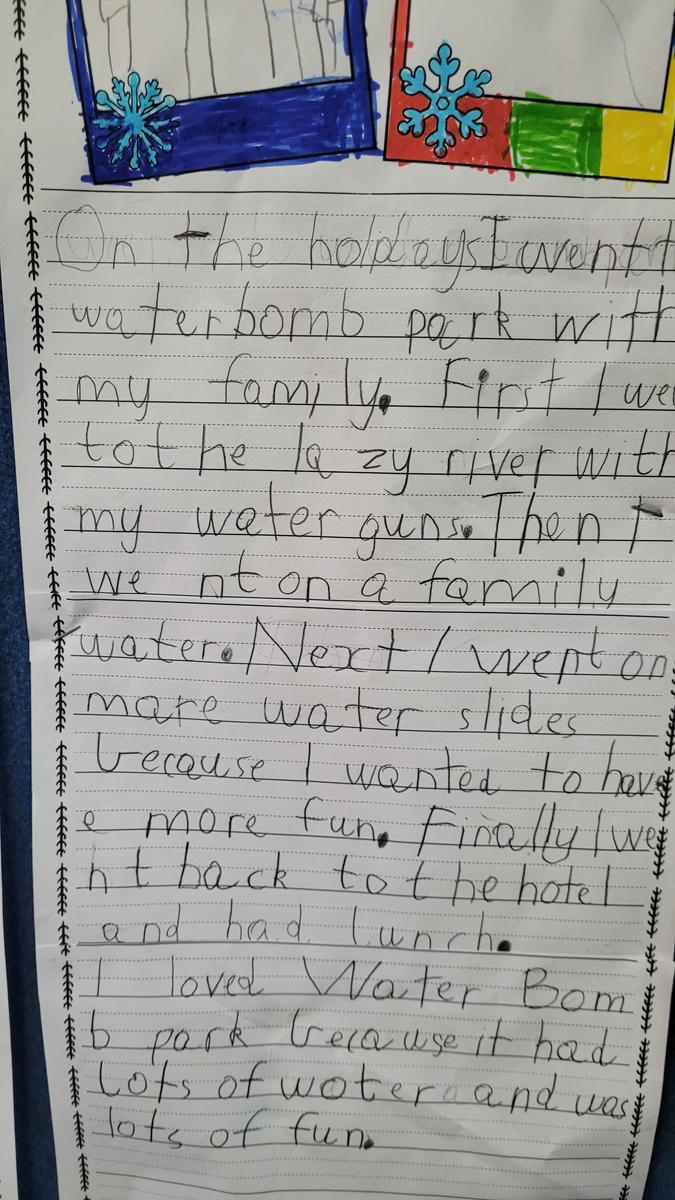 On the holdaysI went t
waterbomb park with
my family. First I we
tothe la zy river with
my water guns. Then I
we nt on a family
water. Next I went on
more water slides
because I wanted to have
e more fun. Finally I we
nt back to the hotel
and had lunch.
I loved Water Bom
b park because it had
Lots of water and was
lots of fun.